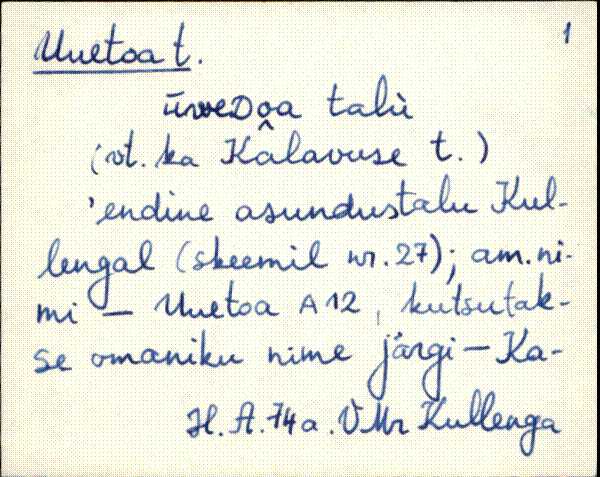 1
Uuetoa t.
ūvveDo̭a talù
(vt. ka Kalavuse t.)
'endine asundustalu Kul-
lengal (skeemil nr. 27); am. ni-
mi — Uuetoa A 12, kutsutak-
se omaniku nime järgi — Ka-
H. A. 74a. VMr Kullenga